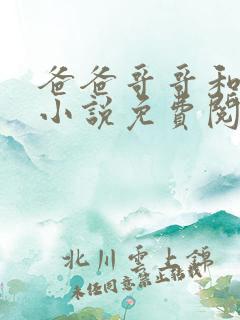 爸爸哥哥和
小說免費閱
北川雲上錦
未经同意禁止转载